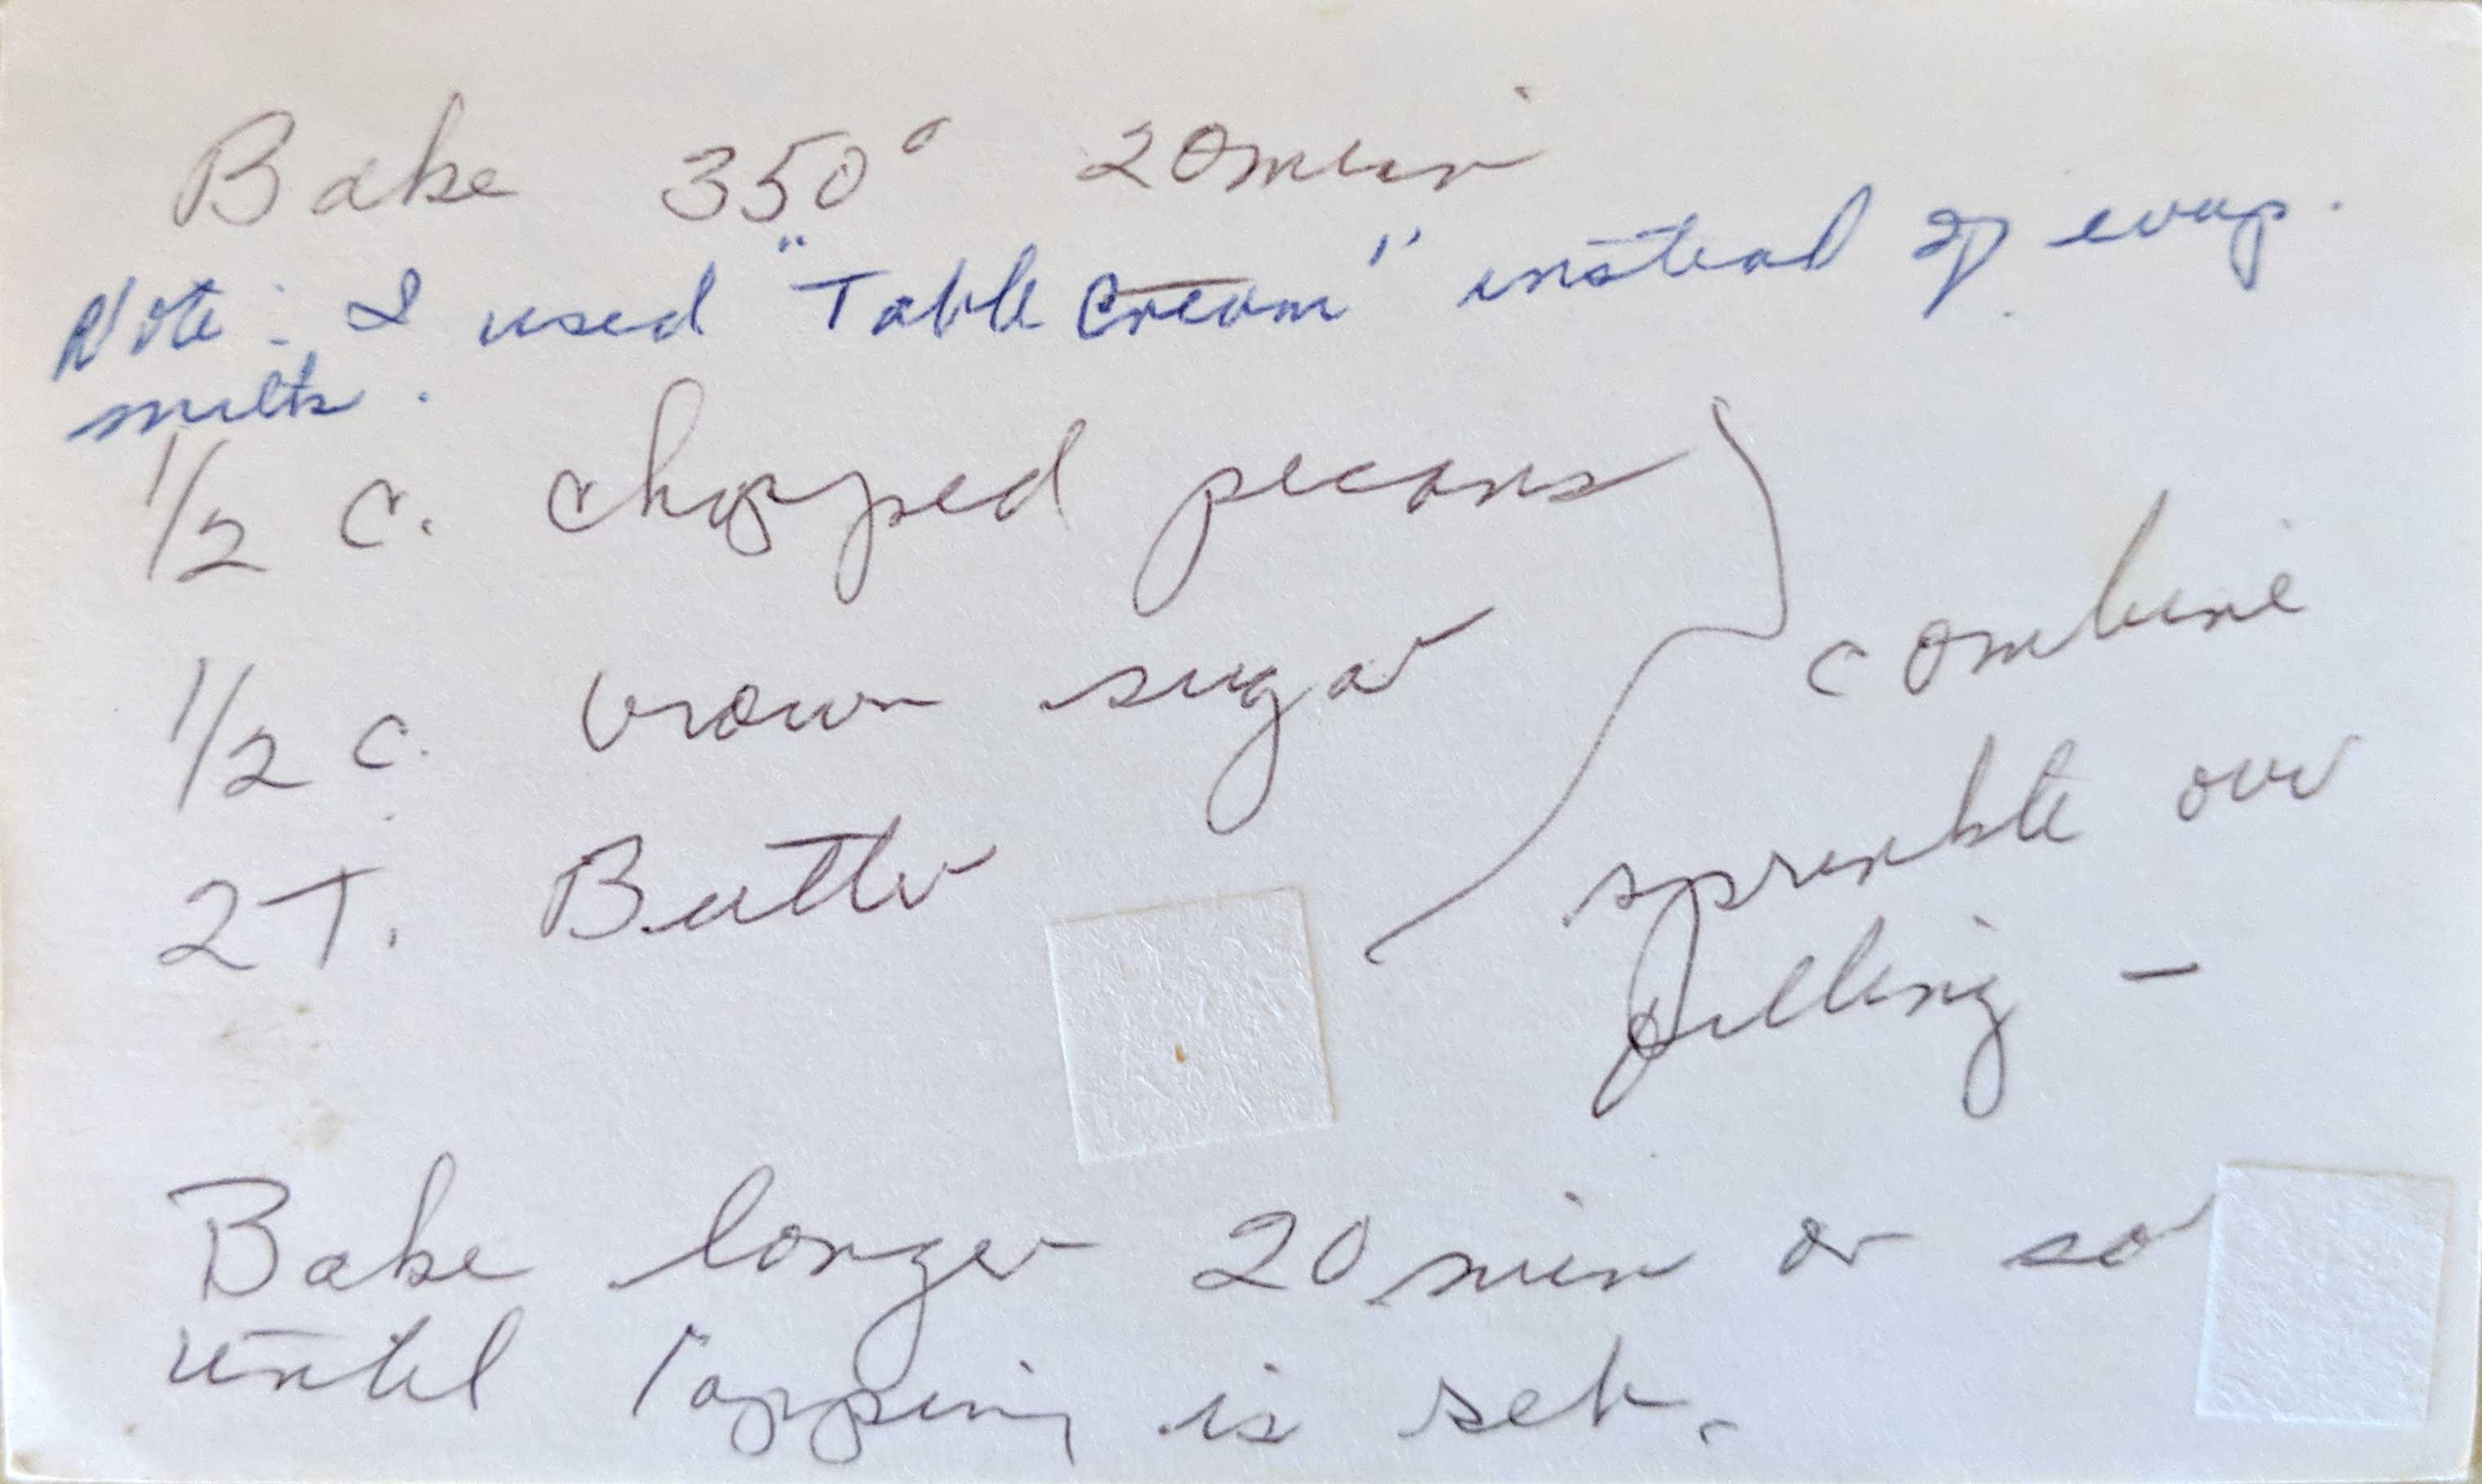 Bake 350° 20 min
Note: I used "Table Cream" instead of evap.
milk.
1/2 c. chopped pecans
1/2 c. brown sugar
2 T. Butter
combine
sprinkle over
filling –
Bake longer 20 min or so
until topping is set.